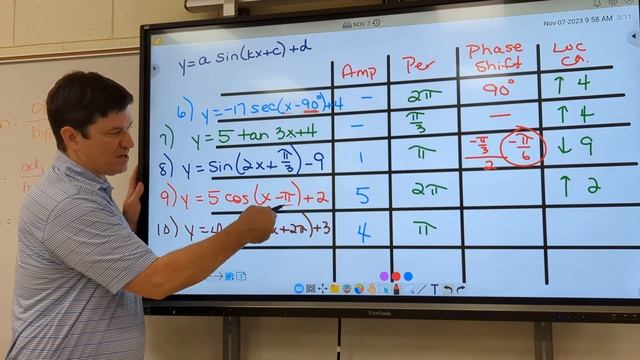 NOV 7
Nov-07-2023 9:58 AM 3/11
y=a sin(kx+c)+d
Amp Per Phase Shift Loc C.A.
6) y=-17 sec(x-90°)+4 - 2π 90° ↑ 4
7) y=5 tan 3x+4 - π/3 - ↑ 4
8) y=sin(2x+π/3)-9 1 π -π/3/2 -π/6 ↓ 9
9) y=5 cos(x-π)+2 5 2π ↑ 2
10) y= x+2π)+3 4 π
ViewSonic